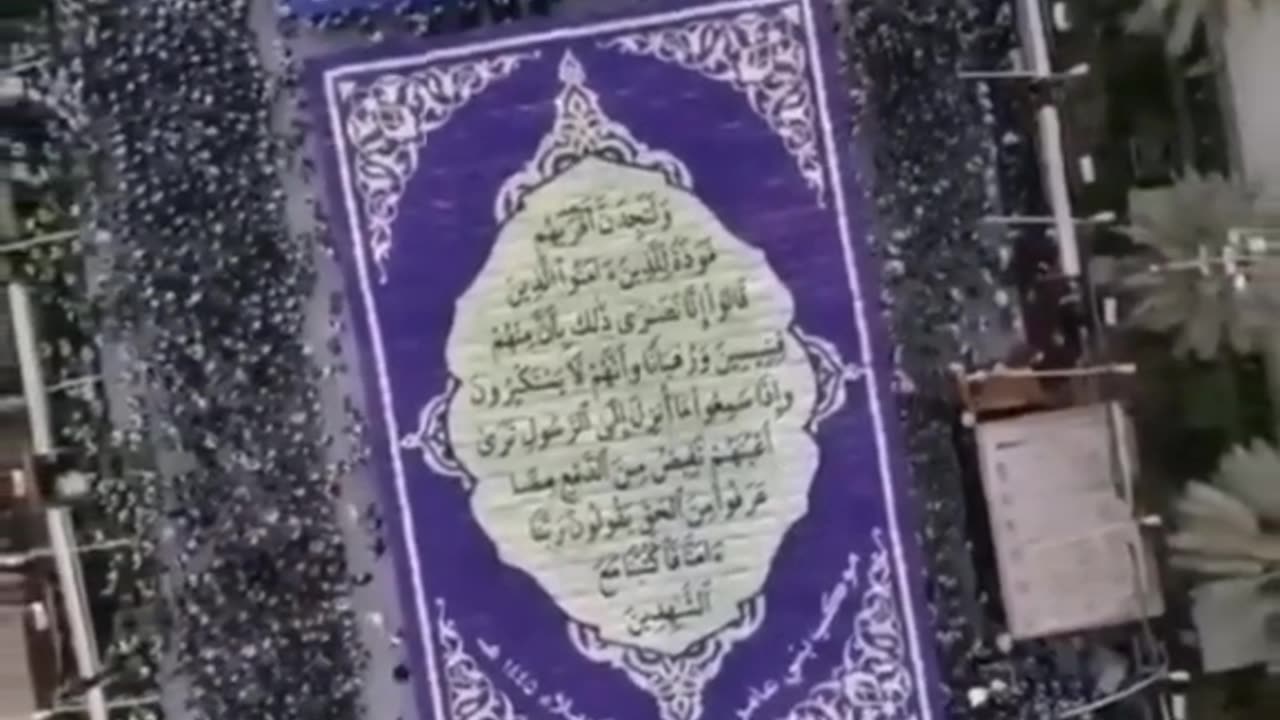 وَلَتَجِدَنَّ أَقْرَبَهُم
مَّوَدَّةً لِّلَّذِينَ ءَامَنُوا۟ ٱلَّذِينَ
قَالُوٓا۟ إِنَّا نَصَـٰرَىٰ ذَٰلِكَ بِأَنَّ مِنْهُمْ
قِسِّيسِينَ وَرُهْبَانًا وَأَنَّهُمْ لَا يَسْتَكْبِرُونَ
وَإِذَا سَمِعُوا۟ مَآ أُنزِلَ إِلَى ٱلرَّسُولِ تَرَىٰٓ
أَعْيُنَهُمْ تَفِيضُ مِنَ ٱلدَّمْعِ مِمَّا
عَرَفُوا۟ مِنَ ٱلْحَقِّ يَقُولُونَ رَبَّنَآ
ءَامَنَّا فَٱكْتُبْنَا مَعَ
ٱلشَّـٰهِدِينَ
موكب بني عامر
١٤٤٥ هـ